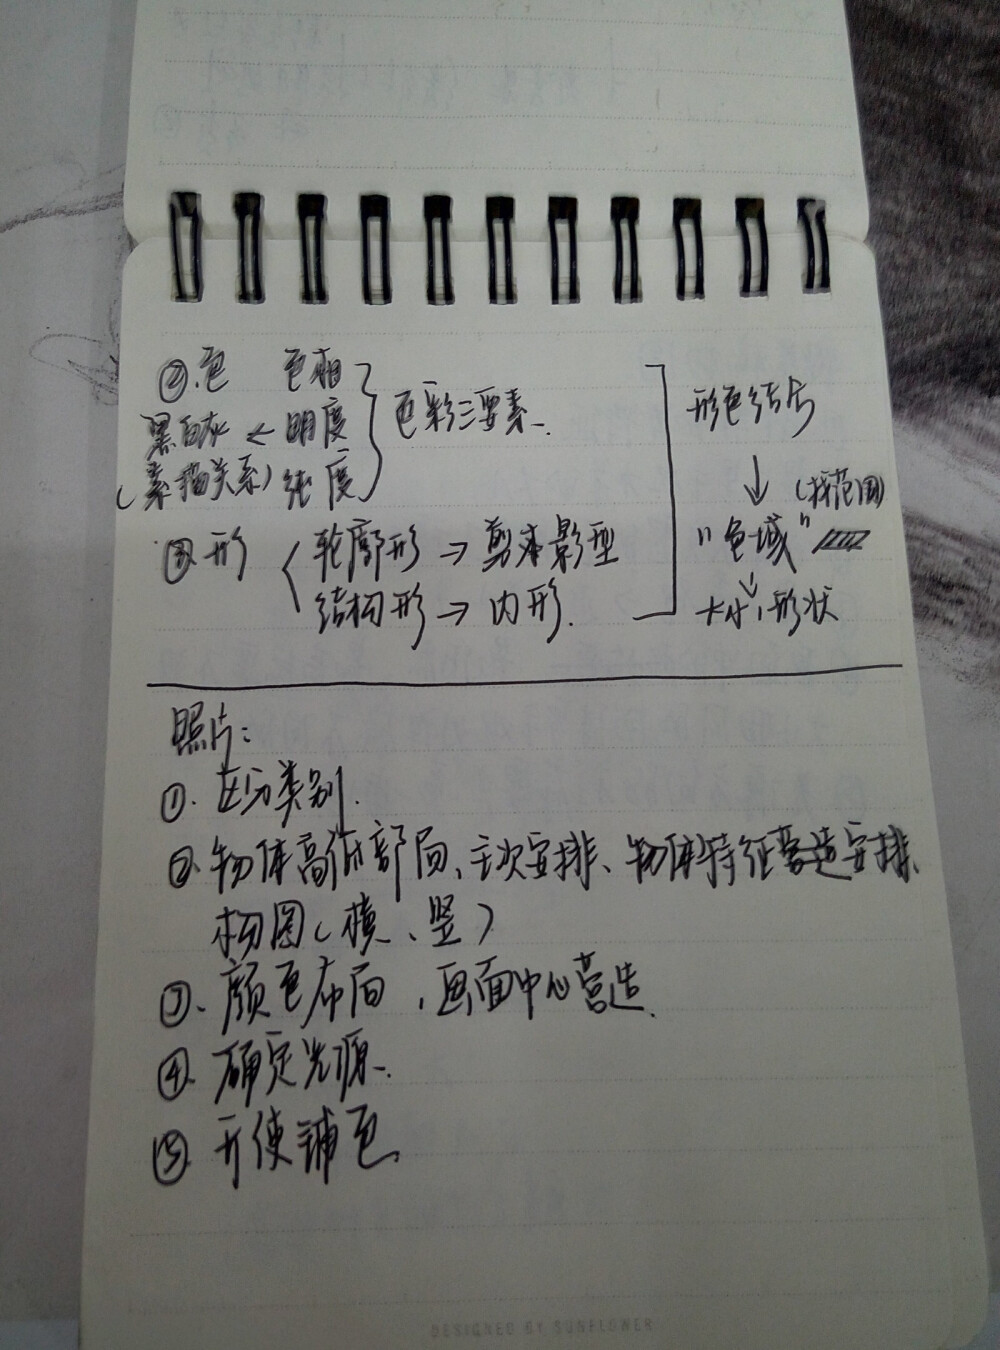 ②.色 色相
黑白灰 ← 明度 色彩三要素.
(素描关系) 纯度
形色结合
↓ (找范围)
"色域"
↓
大小、形状
③形 轮廓形 → 剪渍影型
结构形 → 内形.
照片:
①. 区分类别.
②. 物体高低部局、主次安排、物体特征营造安排、
构图(横、竖)
③、颜色布局,画面中心营造.
④. 确定光源.
⑤. 开使铺色.
DESIGNED BY SUNFLOWER